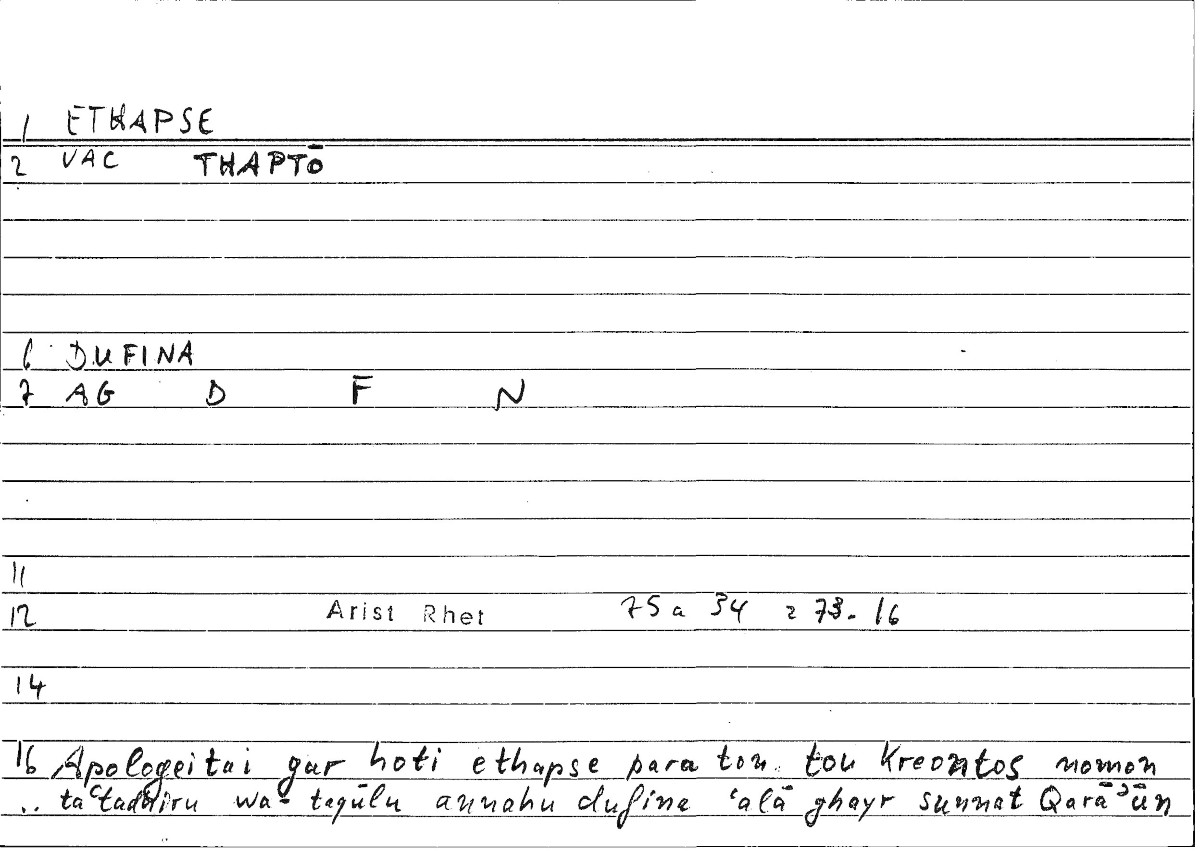 1 ETHAPSE
2 VAC THAPTŌ
6 DUFINA
7 AG D F N
11
12 Arist Rhet 75 a 34 = 73.16
14
16 Apologeitai gar hoti ethapse para ton tou Kreontos nomon
.. taʿtadhiru wa-taqūlu annahu dufina ʿalā ghayr sunnat Qarāʾūn